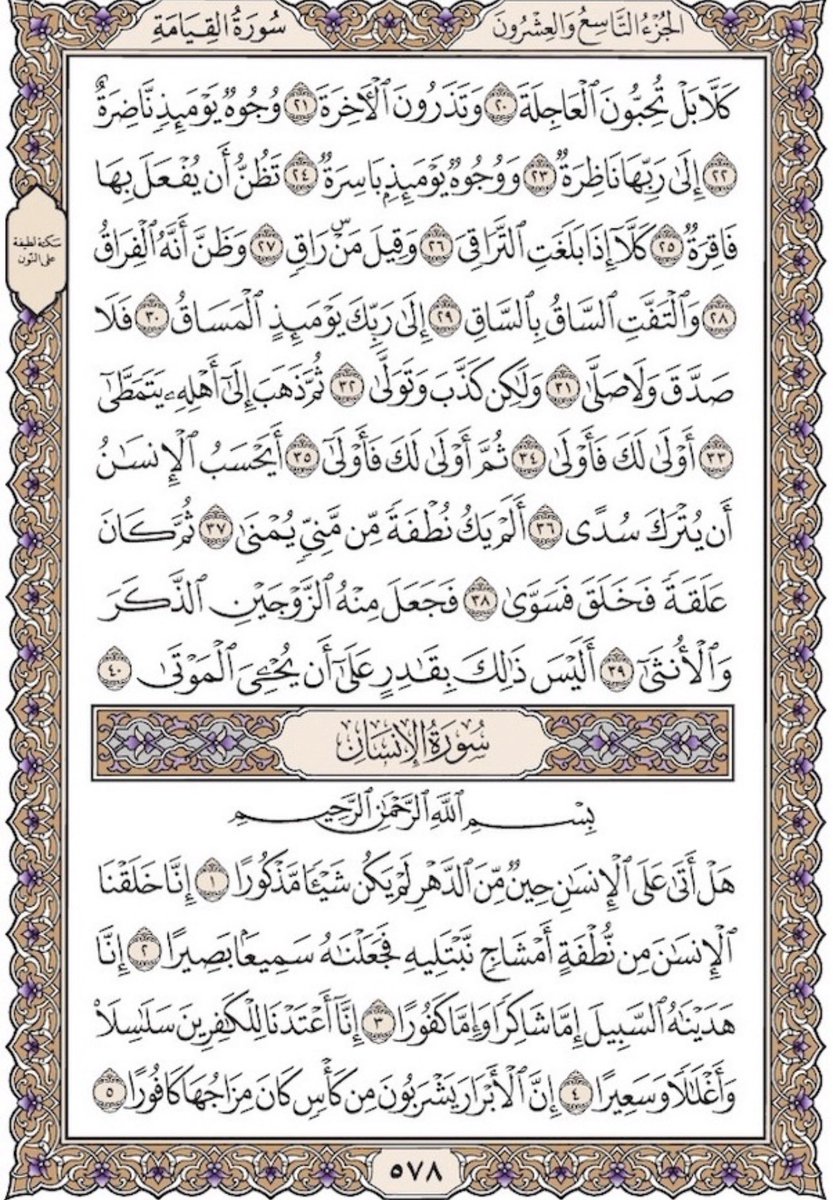 الجُزْءُ التَّاسِعُ وَالعِشْرُونَ
سُورَةُ القِيَامَةِ
كَلَّا بَلْ تُحِبُّونَ ٱلْعَاجِلَةَ ٢٠ وَتَذَرُونَ ٱلْأٓخِرَةَ ٢١ وُجُوهٌ يَوْمَئِذٍ نَّاضِرَةٌ
٢٢ إِلَىٰ رَبِّهَا نَاظِرَةٌ ٢٣ وَوُجُوهٌ يَوْمَئِذٍۭ بَاسِرَةٌ ٢٤ تَظُنُّ أَن يُفْعَلَ بِهَا
فَاقِرَةٌ ٢٥ كَلَّآ إِذَا بَلَغَتِ ٱلتَّرَاقِيَ ٢٦ وَقِيلَ مَنْۜ رَاقٍ ٢٧ وَظَنَّ أَنَّهُ ٱلْفِرَاقُ
سكتة لطيفة
على النون
٢٨ وَٱلْتَفَّتِ ٱلسَّاقُ بِٱلسَّاقِ ٢٩ إِلَىٰ رَبِّكَ يَوْمَئِذٍ ٱلْمَسَاقُ ٣٠ فَلَا
صَدَّقَ وَلَا صَلَّىٰ ٣١ وَلَٰكِن كَذَّبَ وَتَوَلَّىٰ ٣٢ ثُمَّ ذَهَبَ إِلَىٰٓ أَهْلِهِۦ يَتَمَطَّىٰٓ
٣٣ أَوْلَىٰ لَكَ فَأَوْلَىٰ ٣٤ ثُمَّ أَوْلَىٰ لَكَ فَأَوْلَىٰٓ ٣٥ أَيَحْسَبُ ٱلْإِنسَٰنُ
أَن يُتْرَكَ سُدًى ٣٦ أَلَمْ يَكُ نُطْفَةً مِّن مَّنِيٍّ يُمْنَىٰ ٣٧ ثُمَّ كَانَ
عَلَقَةً فَخَلَقَ فَسَوَّىٰ ٣٨ فَجَعَلَ مِنْهُ ٱلزَّوْجَيْنِ ٱلذَّكَرَ
وَٱلْأُنثَىٰٓ ٣٩ أَلَيْسَ ذَٰلِكَ بِقَٰدِرٍ عَلَىٰٓ أَن يُحْـِۧيَ ٱلْمَوْتَىٰ ٤٠
سُورَةُ الإِنسَانِ
بِسْمِ ٱللَّهِ ٱلرَّحْمَٰنِ ٱلرَّحِيمِ
هَلْ أَتَىٰ عَلَى ٱلْإِنسَٰنِ حِينٌ مِّنَ ٱلدَّهْرِ لَمْ يَكُن شَيْـًٔا مَّذْكُورًا ١ إِنَّا خَلَقْنَا
ٱلْإِنسَٰنَ مِن نُّطْفَةٍ أَمْشَاجٍ نَّبْتَلِيهِ فَجَعَلْنَٰهُ سَمِيعًۢا بَصِيرًا ٢ إِنَّا
هَدَيْنَٰهُ ٱلسَّبِيلَ إِمَّا شَاكِرًا وَإِمَّا كَفُورًا ٣ إِنَّآ أَعْتَدْنَا لِلْكَٰفِرِينَ سَلَٰسِلَا۟
وَأَغْلَٰلًا وَسَعِيرًا ٤ إِنَّ ٱلْأَبْرَارَ يَشْرَبُونَ مِن كَأْسٍ كَانَ مِزَاجُهَا كَافُورًا ٥
٥٧٨